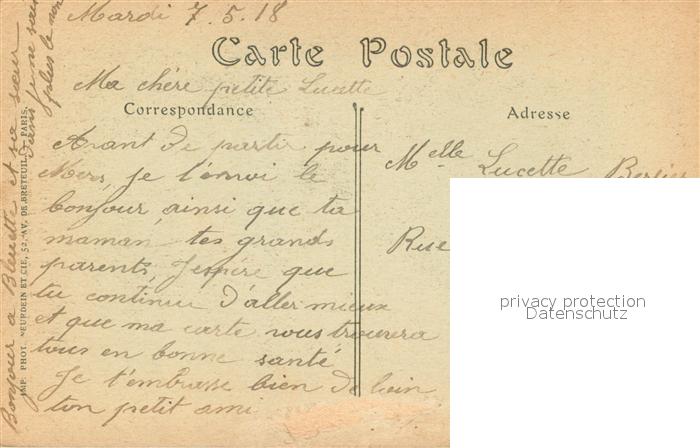 Mardi 7.5.18
Carte Postale
Ma chère petite Lucette
Correspondance
Avant de partir pour
Mers, je t'envoi le
bonjour, ainsi que ta
maman, tes grands
parents, J'espère que
tu continue d'aller mieux
et que ma carte vous trouvera
tous en bonne santé
Je t'embrasse bien de loin
ton petit ami
Adresse
Melle Lucette
Rue
privacy protection
Datenschutz
Bonjour a Bleuette et sa sœur
dans je ne sais
plus le nom
IMP. PHOT. NEURDEIN ET CIE, 52, AV. DE BRETEUIL, PARIS.